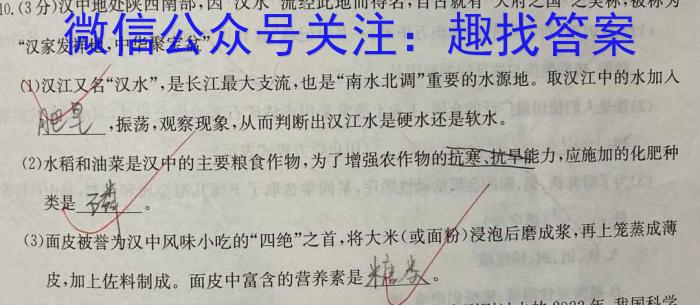 10.(3分)汉中地处陕西南部,因“汉水”流经此地而得名,自古就有“天府之国”之美称,被称为
微信公众号关注:趣找答案
“汉家发祥地,中华聚宝盆”
(1)汉江又名“汉水”,是长江最大支流,也是“南水北调”重要的水源地。取汉江中的水加入
肥皂,振荡,观察现象,从而判断出汉江水是硬水还是软水。
(2)水稻和油菜是汉中的主要粮食作物,为了增强农作物的抗寒、抗旱能力,应施加的化肥种
类是 磷 。
(3)面皮被誉为汉中风味小吃的“四绝”之首,将大米(或面粉)浸泡后磨成浆,再上笼蒸成薄
皮,加上佐料制成。面皮中富含的营养素是 糖类 。
2023年,我国科学